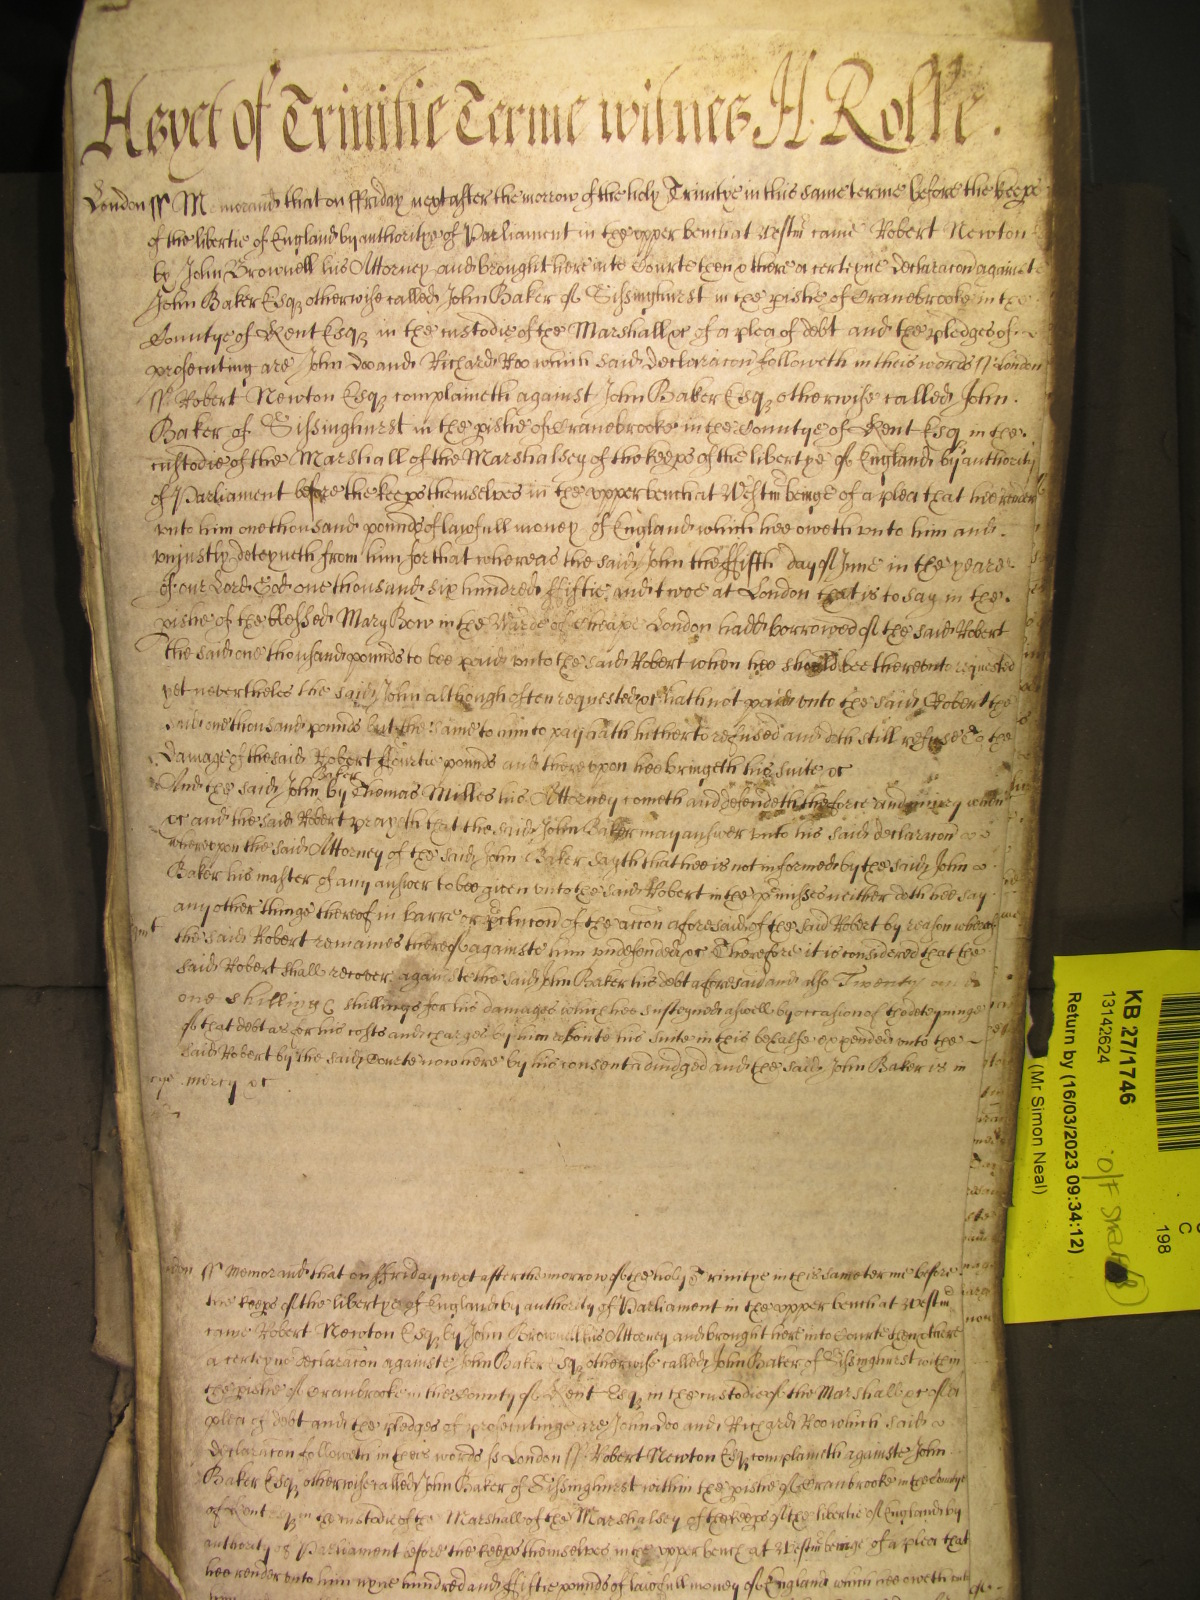 As yet of Trinitie Terme witnes H. Rolle.
London ss Memorand that on ffriday next after the morrow of the holy Trinitye in this same terme before the keeps
of the libertie of England by authoritye of Parliament in the upper bench at Westm came Robert Newton
by John Brownell his Attorney and brought here into Courte then & there a certeyne declaracon againste
John Baker Esq otherwise called John Baker of Sissinghurst in the pishe of Cranebrooke in the
Countye of Kent Esq in the custodie of the Marshall &c of a plea of debt and the pledges of
prosecuting are John Doo and Richard Roo which said declaracon followeth in theis words ss London
ss Robert Newton Esq complaineth against John Baker Esq otherwise called John
Baker of Sissinghurst in the pishe of Cranebrooke in the Countye of Kent Esq in the
custodie of the Marshall of the Marshalsey of the keeps of the libertye of England by authority
of Parliament before the keeps themselves in the upper bench at Westm beinge of a plea that hee render
unto him one thousand pounds of lawfull money of England which hee oweth unto him and
uniustly deteyneth from him for that whereas the said John the ffifth day of June in the yeare
of our Lord God one thousand six hundred ffiftie and twoe at London that is to say in the
pishe of the blessed Mary Bow in the Warde of Cheape London hadd borrowed of the said Robert
the said one thousand pounds to bee paid unto the said Robert when hee should bee thereunto requested
yet nevertheles the said John although often requested &c hath not paid unto the said Robert the
said one thousand pounds but the same to him to pay hath hitherto refused and doth still refuse To the
damage of the said Robert ffourtie pounds and thereupon hee bringeth his suite &c
And the said John Baker by Thomas Milles his Attorney cometh and defendeth the force and iniury when
&c and the said Robert prayeth that the said John Baker may answer unto his said declaracon &c
whereupon the said Attorney of the said John Baker sayth that hee is not informed by the said John
Baker his master of any answer to bee given unto the said Robert in the pmisses neither doth hee say
any other things thereof in barre or pclucon of the accon aforesaid of the said Robert by reason whereof
the said Robert remaines thereof againste him undefended &c Therefore it is considered that the
said Robert shall recover againste the said John Baker his debt aforesaid and also Twenty and
one shillings shillings for his damages which hee susteyned aswell by occasion of the deteyninge
of that debt as for his costs and charges by him about his suite in this behalfe expended unto the
said Robert by the said Courte now here by his consent adiudged and the said John Baker is in
mercy &c
ss Memorand that on ffriday next after the morrow of the holy Trinitye in this same terme before
the keeps of the libertye of England by authority of Parliament in the upper bench at Westm
came Robert Newton Esq by John Brownell his Attorney and brought here into Courte then & there
a certeyne declaracon againste John Baker Esq otherwise called John Baker of Sissinghurst within
the pishe of Cranbrooke in the County of Kent Esq in the custodie of the Marshall &c of a
plea of debt and the pledges of prosecutinge are John Doo and Richard Roo which said
declaracon followeth in theis words ss London ss Robert Newton Esq complaineth againste John
Baker Esq otherwise called John Baker of Sissinghurst within the pishe of Cranbrooke in the Countye
of Kent Esq in the custodie of the Marshall of the Marshalsey of the keeps of the libertie of England by
authority of Parliament before the keeps themselves in the upper bench at Westm beinge of a plea that
hee render unto him nyne hundred and ffiftie pounds of lawfull money of England which hee oweth unto
KB 27/1746
13142624
Return by (16/03/2023 09:34:12)
(Mr Simon Neal)
C
198